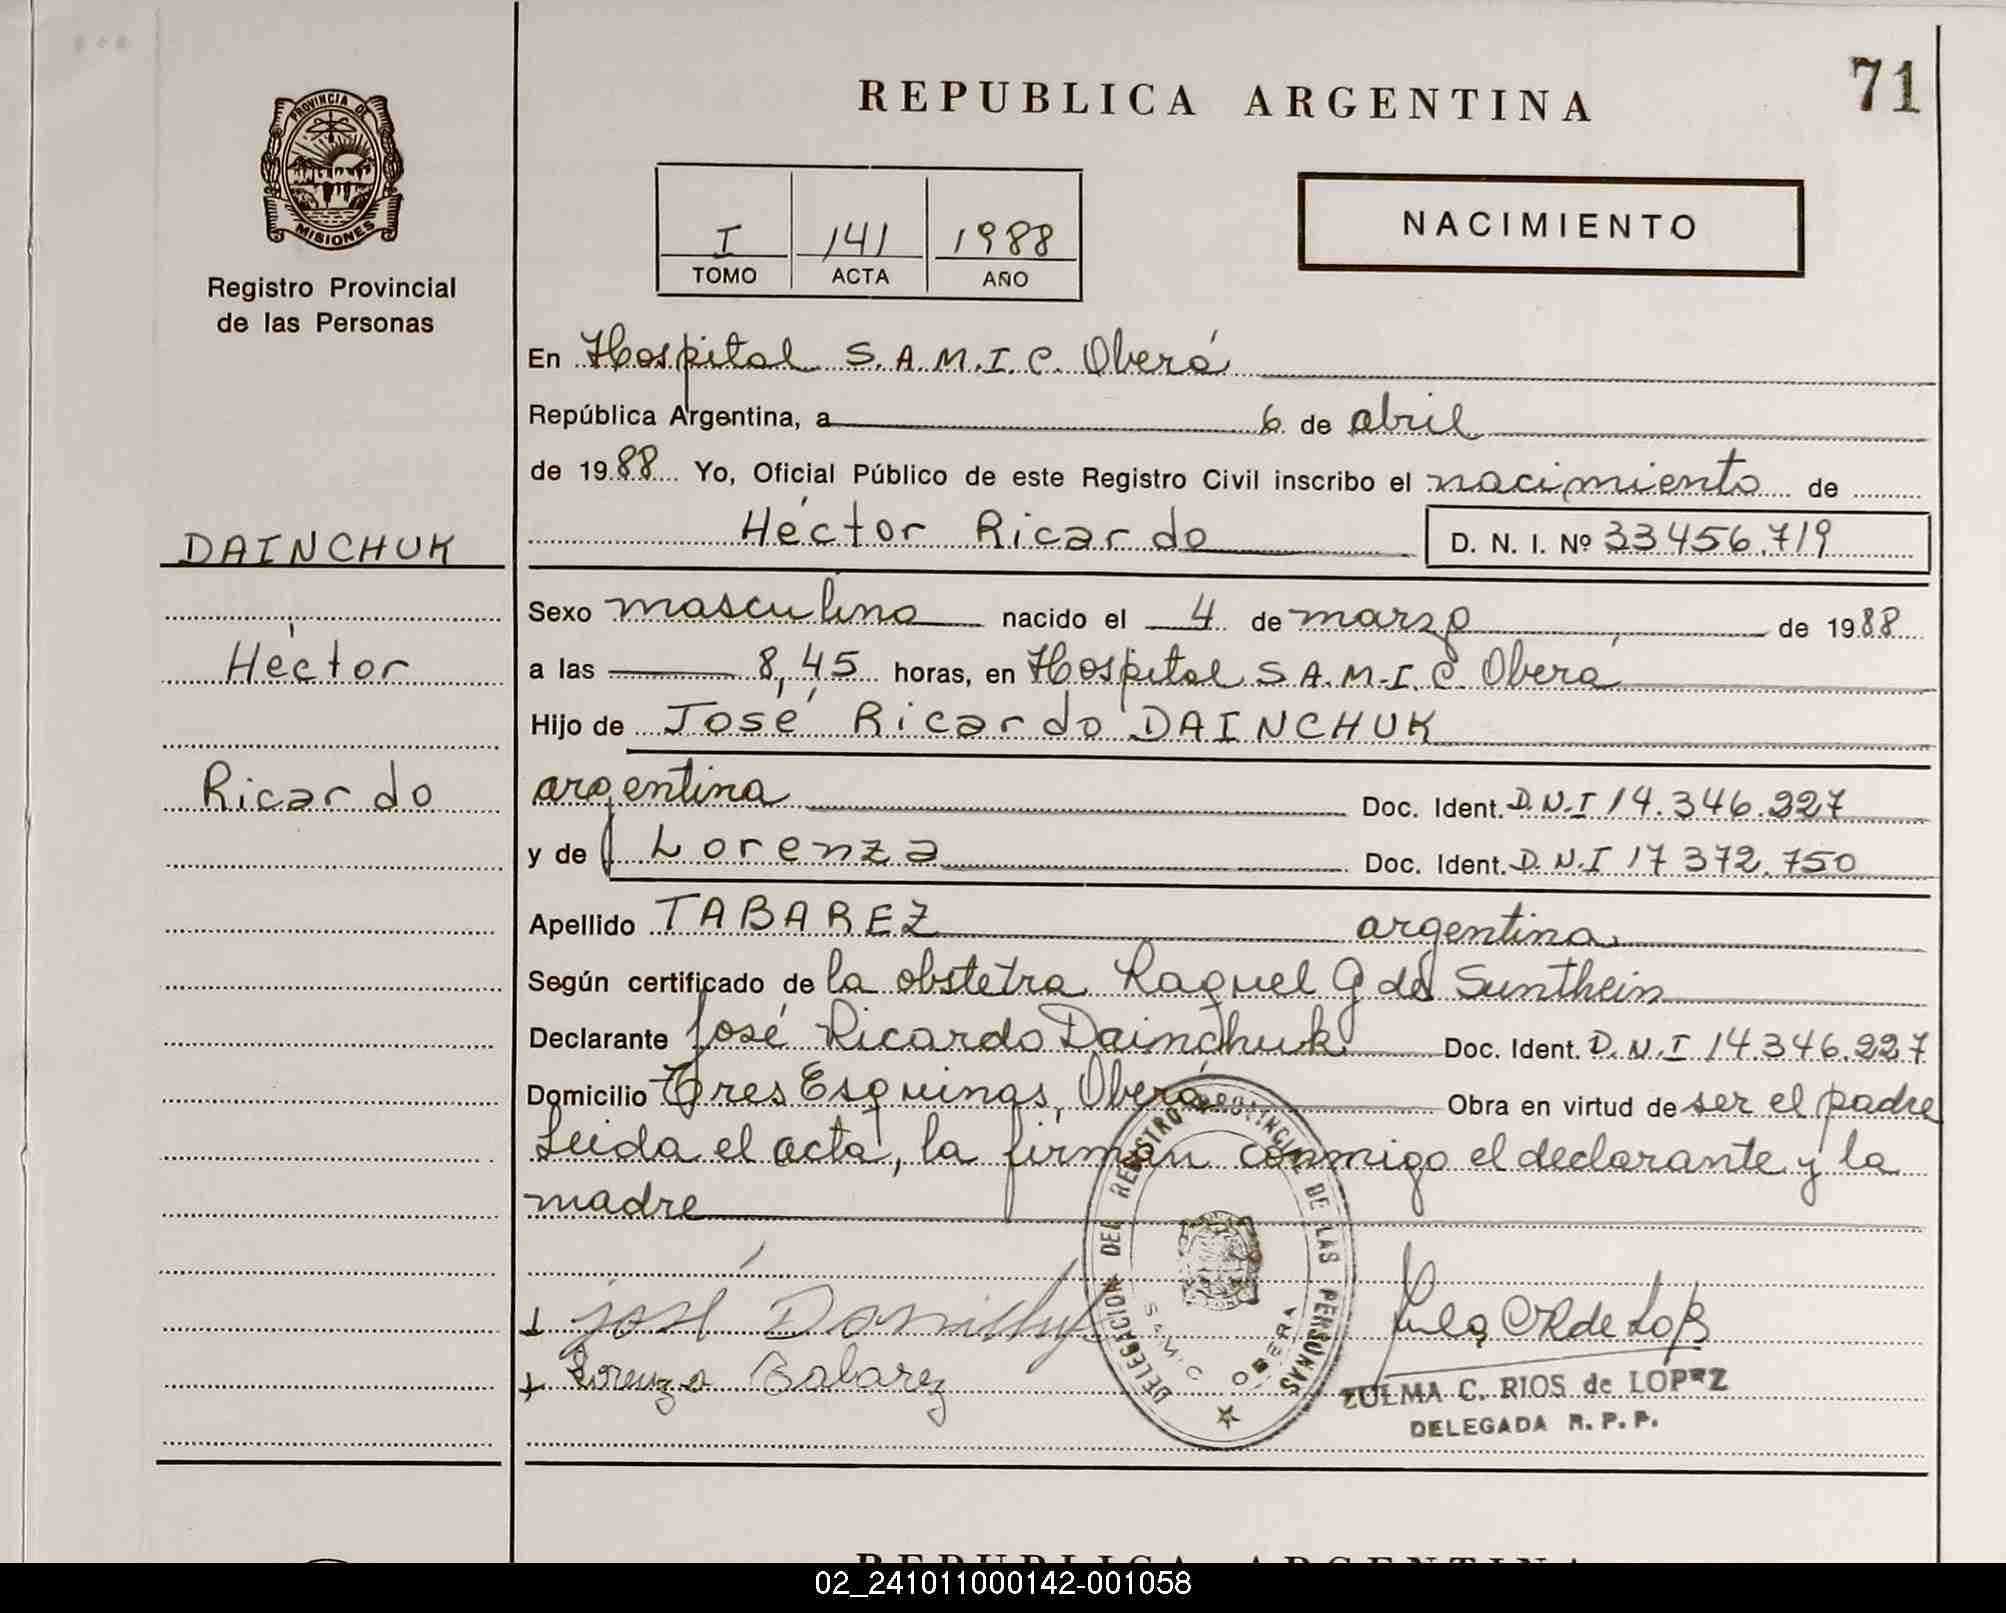 REPUBLICA ARGENTINA
71
PROVINCIA DE MISIONES
Registro Provincial
de las Personas
I 141 1988
TOMO ACTA AÑO
NACIMIENTO
En Hospital S.A.M.I.C. Oberá
República Argentina, a 6 de abril
de 1988 Yo, Oficial Público de este Registro Civil inscribo el nacimiento de
Héctor Ricardo D. N. I. Nº 33456.719
DAINCHUK
Héctor
Ricardo
Sexo masculino nacido el 4 de marzo de 1988
a las 8,45 horas, en Hospital S.A.M.I.C. Oberá
Hijo de José Ricardo DAINCHUK
argentina Doc. Ident. D.N.I 14.346.227
y de Lorenza Doc. Ident. D.N.I 17 372.750
Apellido TABAREZ argentina
Según certificado de la obstetra Raquel G de Sunthein
Declarante José Ricardo Dainchuk Doc. Ident. D.N.I 14.346.227
Domicilio Tres Esquinas, Oberá Obra en virtud de ser el padre
Leida el acta, la firman conmigo el declarante y la
madre
DELEGACION DEL REGISTRO PROVINCIAL DE LAS PERSONAS
S.A.M.I.C. OBERA
José
Lorenza Tabarez
ZULMA C. RIOS de LOPEZ
DELEGADA R. P. P.
REPUBLICA ARGENTINA
02_241011000142-001058